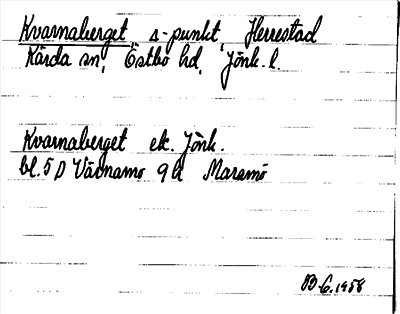 Kvarnaberget s-punkt, Herrestad
Kärda sn, Östbo hd, Jönk. l.
Kvarnaberget ek. Jönk.
bl. 5 D Värnamo 9 a Maramö
1958